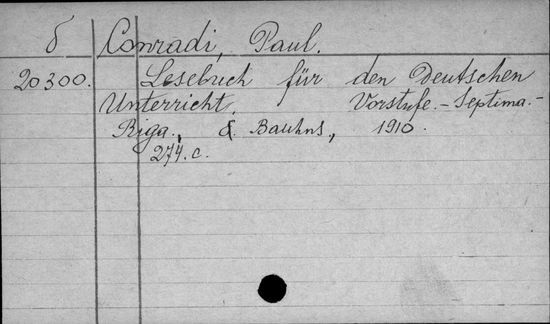 δ Conradi, Paul.
20300. Lesebuch für den Deutschen
Unterricht. Vorstufe.-Septima.-
Riga., Bauhns, 1910.
274.c.